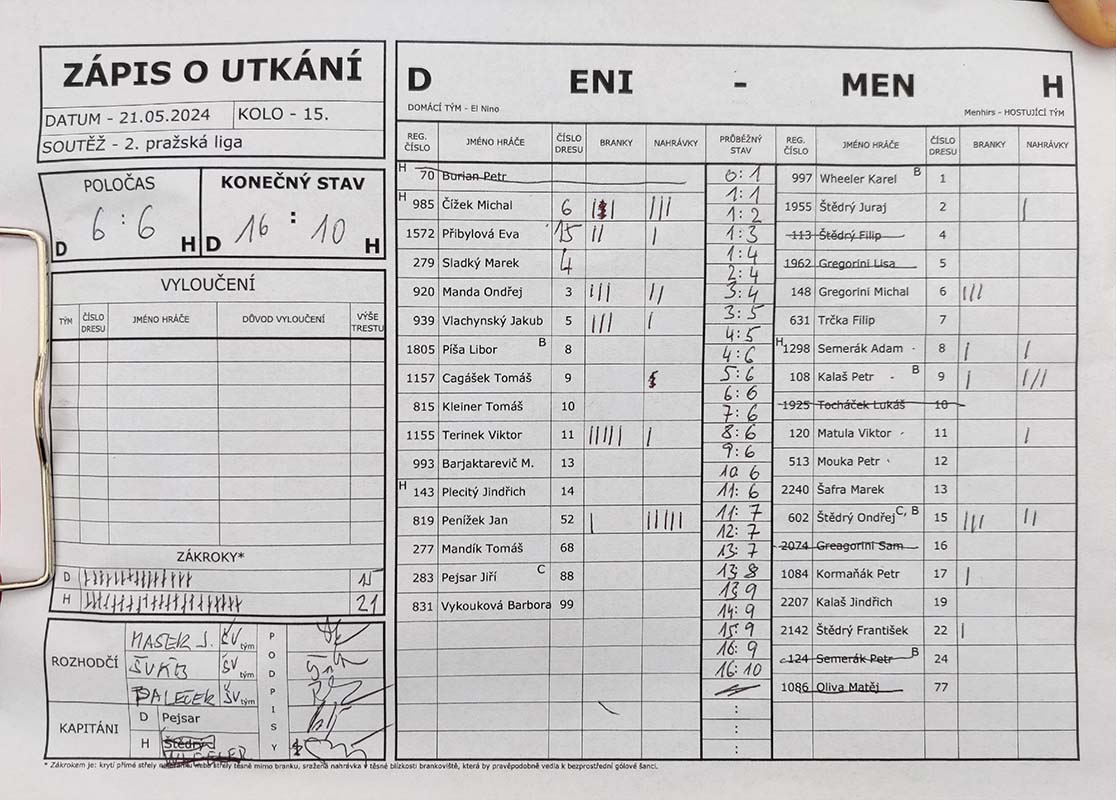 ZÁPIS O UTKÁNÍ
DATUM - 21.05.2024 KOLO - 15.
SOUTĚŽ - 2. pražská liga
POLOČAS KONEČNÝ STAV
6 : 6 16 : 10
D H D H
VYLOUČENÍ
TÝM ČÍSLO DRESU JMÉNO HRÁČE DŮVOD VYLOUČENÍ VÝŠE TRESTU
ZÁKROKY*
D 15
H 21
ROZHODČÍ
MASEK J. ČV tým
ŠV tým
PALEČEK ŠV tým
PODPISY
KAPITÁNI
D Pejsar
H Štědrý
WHEELER
D ENI - MEN H
DOMÁCÍ TÝM - El Nino Menhirs - HOSTUJÍCÍ TÝM
REG. ČÍSLO JMÉNO HRÁČE ČÍSLO DRESU BRANKY NAHRÁVKY
H 70 Burian Petr
H 985 Čížek Michal 6 ||| |||
1572 Přibylová Eva 15 || |
279 Sladký Marek 4
920 Manda Ondřej 3 ||| ||
939 Vlachynský Jakub 5 ||| |
1805 Píša Libor B 8
1157 Cagášek Tomáš 9
815 Kleiner Tomáš 10
1155 Terinek Viktor 11 ||||| |
993 Barjaktarevič M. 13
H 143 Plecitý Jindřich 14
819 Penížek Jan 52 | |||||
277 Mandík Tomáš 68
283 Pejsar Jiří C 88
831 Vykouková Barbora 99
PRŮBĚŽNÝ STAV
0:1
1:1
1:2
1:3
1:4
2:4
3:4
3:5
4:5
4:6
5:6
6:6
7:6
8:6
9:6
10 6
11:6
11:7
12:7
13:7
13:8
13 9
14:9
15:9
16:9
16:10
:
:
REG. ČÍSLO JMÉNO HRÁČE ČÍSLO DRESU BRANKY NAHRÁVKY
997 Wheeler Karel B 1
1955 Štědrý Juraj 2 |
113 Štědrý Filip 4
1962 Gregorini Lisa 5
148 Gregorini Michal 6 |||
631 Trčka Filip 7
H 1298 Semerák Adam 8 | |
108 Kalaš Petr B 9 | |||
1925 Tocháček Lukáš 10
120 Matula Viktor 11 |
513 Mouka Petr 12
2240 Šafra Marek 13
602 Štědrý Ondřej C, B 15 ||| ||
2074 Greagorini Sam 16
1084 Kormaňák Petr 17 |
2207 Kalaš Jindřich 19
2142 Štědrý František 22 |
124 Semerák Petr B 24
1086 Oliva Matěj 77
* Zákrokem je: krytí přímé střely nebo střely těsně mimo branku, sražená nahrávka v těsné blízkosti brankoviště, která by pravěpodobně vedla k bezprostřední gólové šanci.